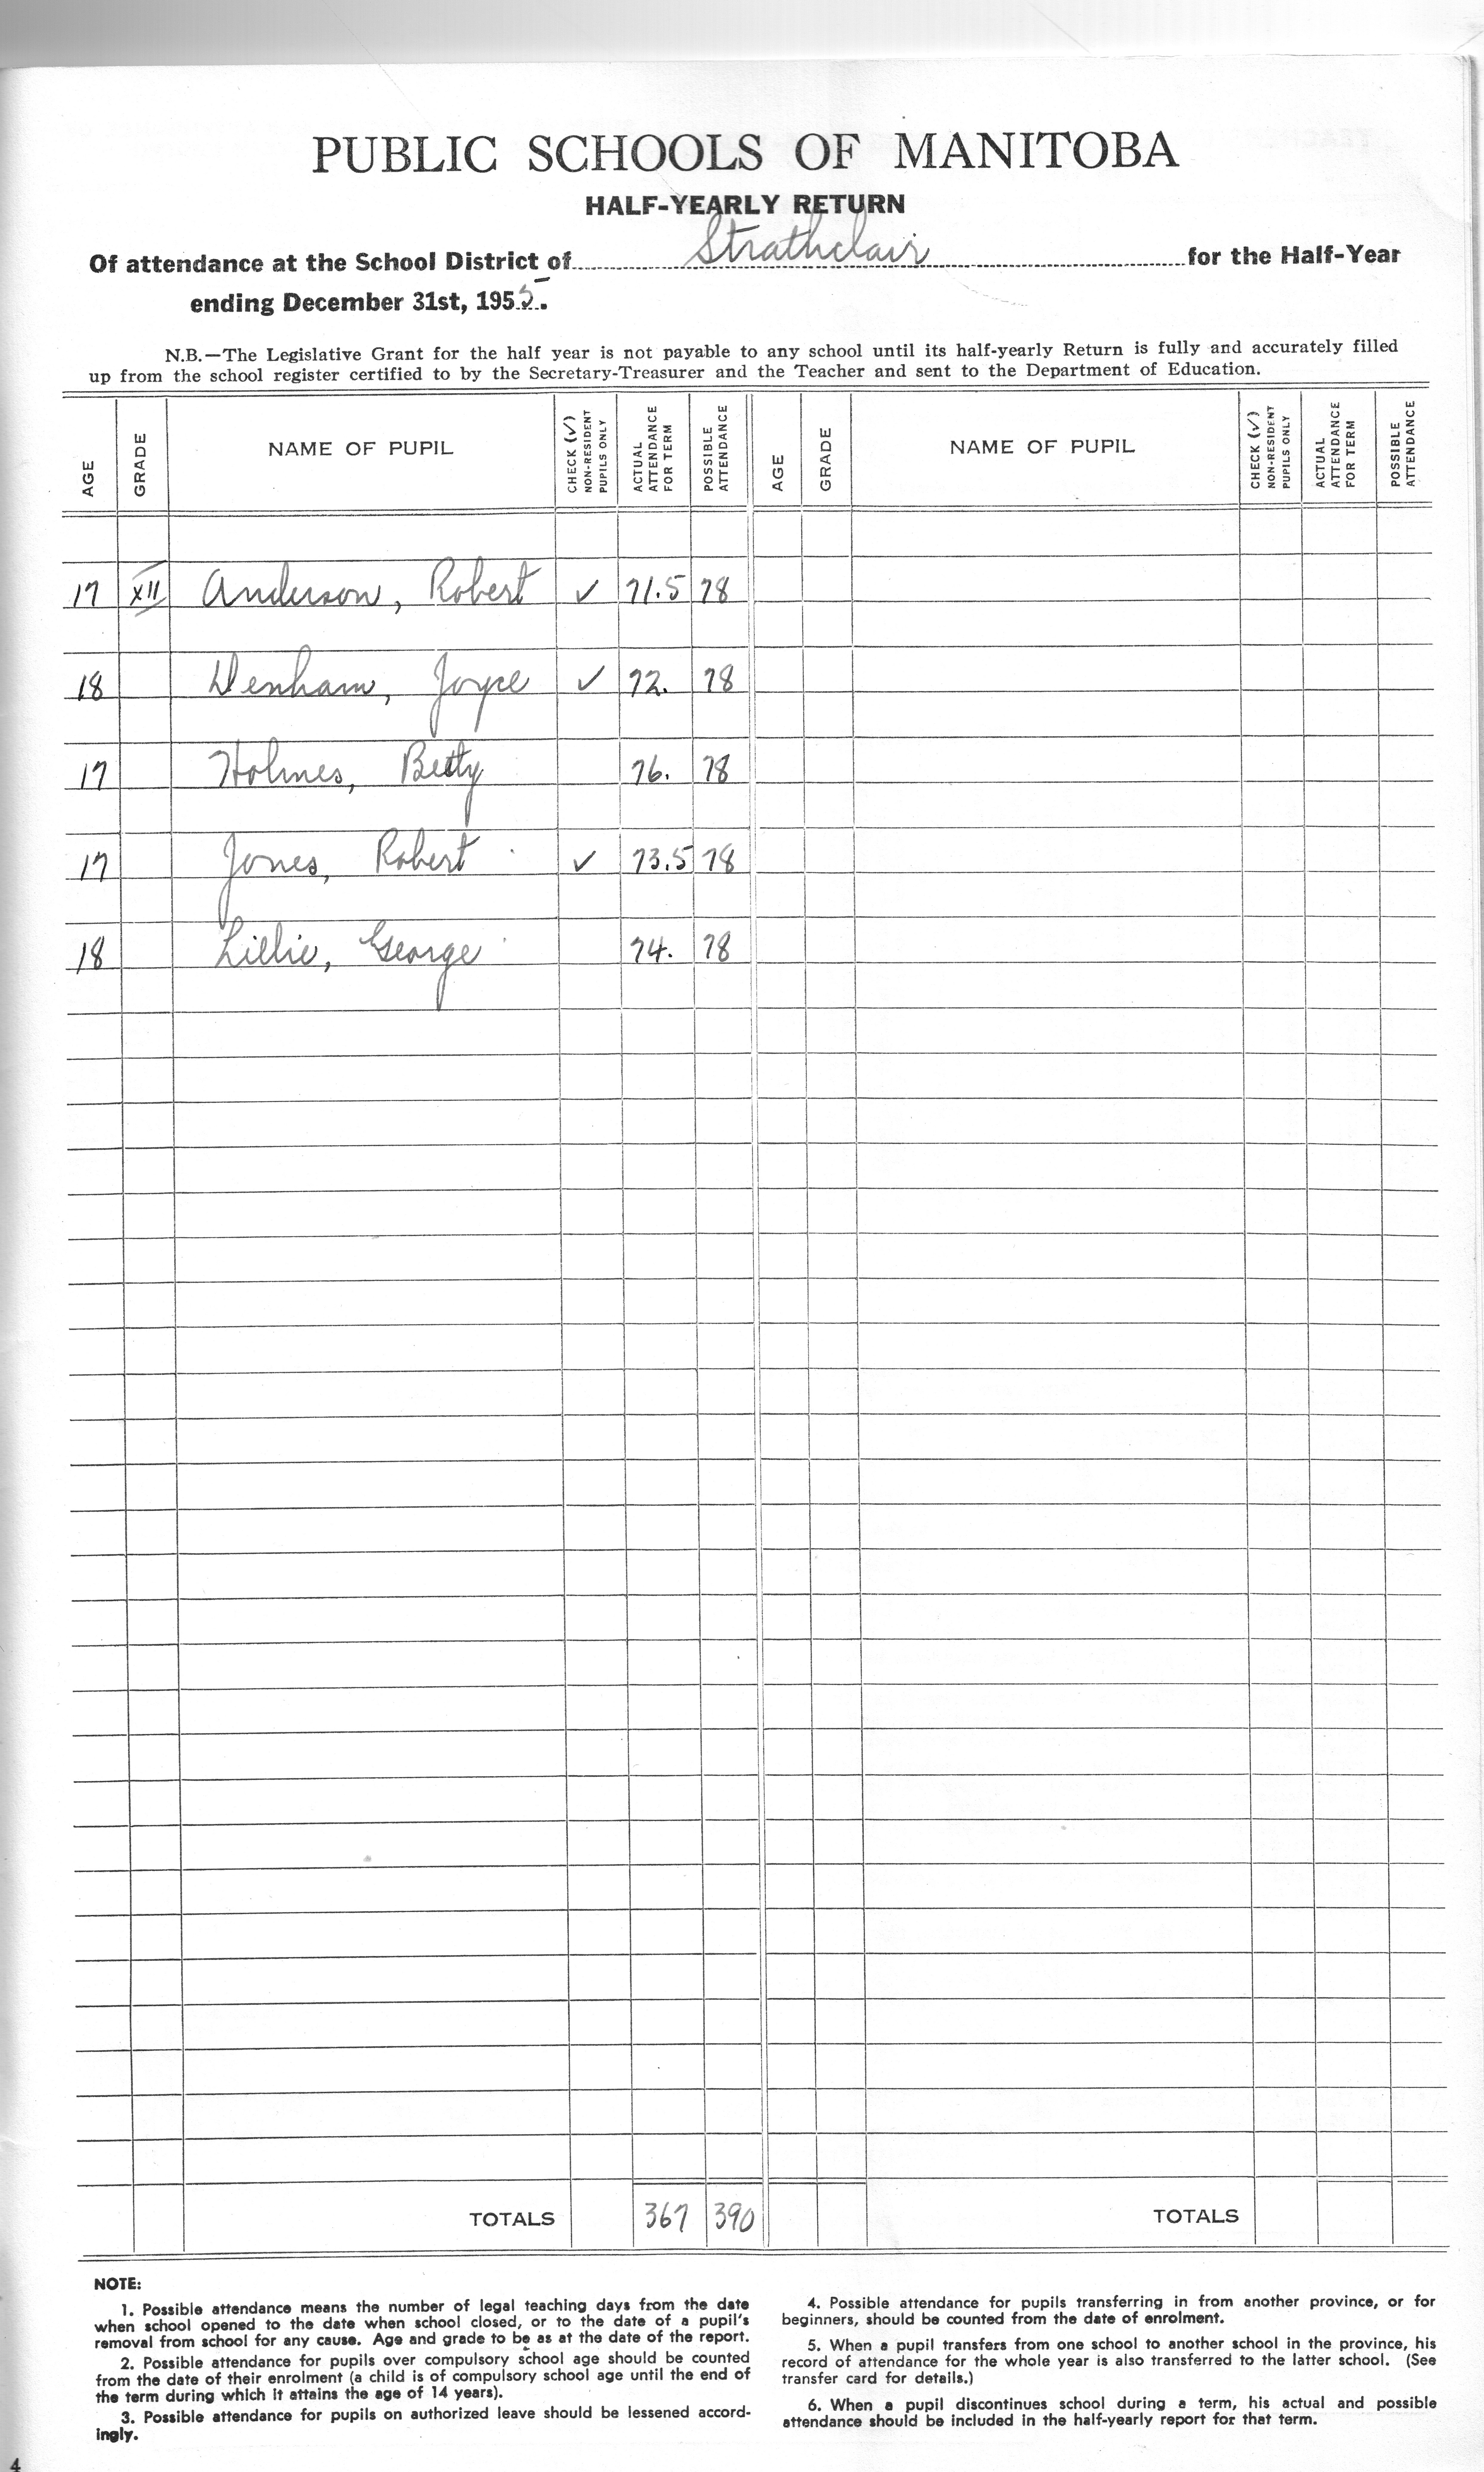 PUBLIC SCHOOLS OF MANITOBA
HALF-YEARLY RETURN
Of attendance at the School District of Strathclair for the Half-Year
ending December 31st, 1955.
N.B.—The Legislative Grant for the half year is not payable to any school until its half-yearly Return is fully and accurately filled
up from the school register certified to by the Secretary-Treasurer and the Teacher and sent to the Department of Education.
AGE GRADE NAME OF PUPIL CHECK (✓) NON-RESIDENT PUPILS ONLY ACTUAL ATTENDANCE FOR TERM POSSIBLE ATTENDANCE AGE GRADE NAME OF PUPIL CHECK (✓) NON-RESIDENT PUPILS ONLY ACTUAL ATTENDANCE FOR TERM POSSIBLE ATTENDANCE
17 XII Anderson, Robert ✓ 71.5 78
18 Denham, Joyce ✓ 72. 78
17 Holmes, Betty 76. 78
17 Jones, Robert ✓ 73.5 78
18 Lillie, George 74. 78
TOTALS 367 390 TOTALS
NOTE:
1. Possible attendance means the number of legal teaching days from the date
when school opened to the date when school closed, or to the date of a pupil's
removal from school for any cause. Age and grade to be as at the date of the report.
2. Possible attendance for pupils over compulsory school age should be counted
from the date of their enrolment (a child is of compulsory school age until the end of
the term during which it attains the age of 14 years).
3. Possible attendance for pupils on authorized leave should be lessened accord-
ingly.
4. Possible attendance for pupils transferring in from another province, or for
beginners, should be counted from the date of enrolment.
5. When a pupil transfers from one school to another school in the province, his
record of attendance for the whole year is also transferred to the latter school. (See
transfer card for details.)
6. When a pupil discontinues school during a term, his actual and possible
attendance should be included in the half-yearly report for that term.
4